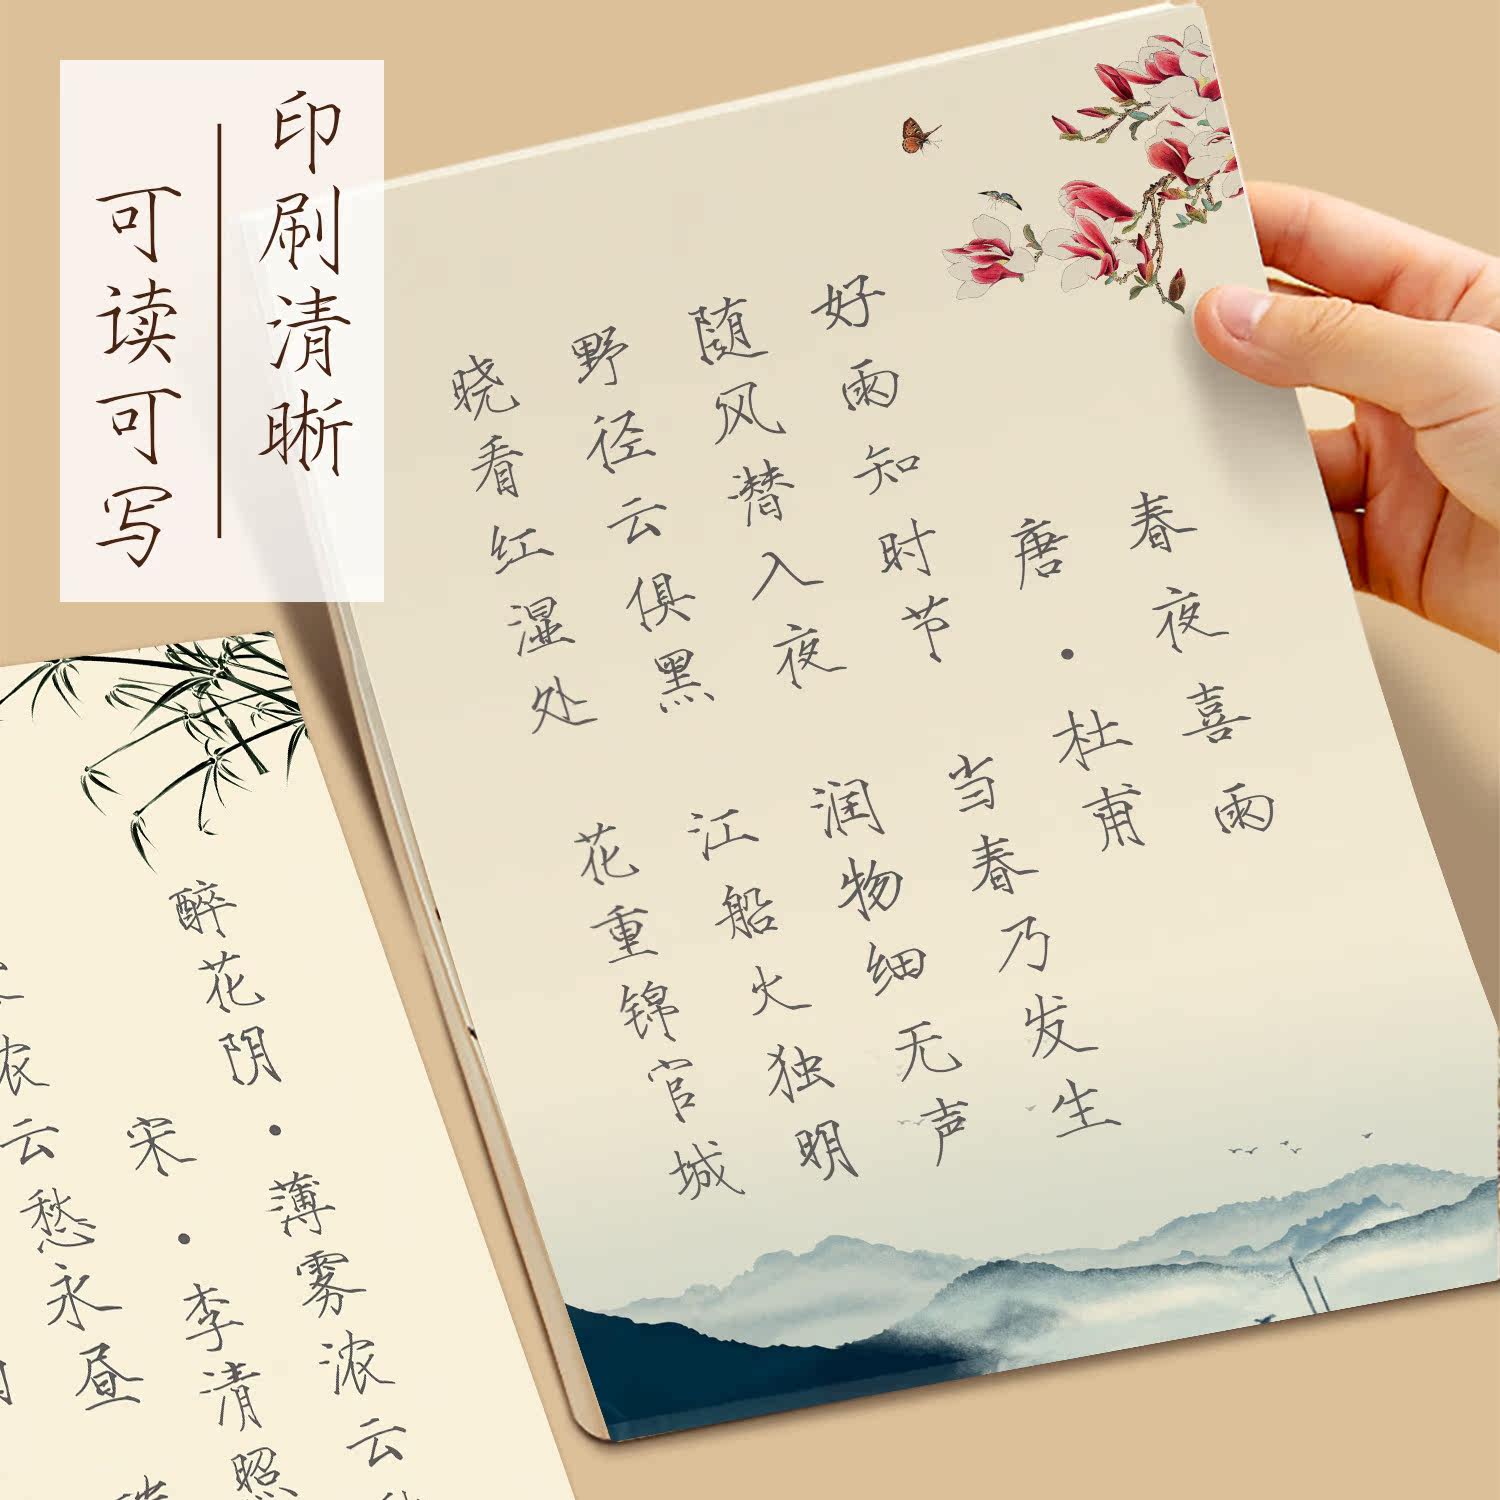 印刷清晰
可读可写
春夜喜雨
唐·杜甫
好雨知时节
当春乃发生
随风潜入夜
润物细无声
野径云俱黑
江船火独明
晓看红湿处
花重锦官城
醉花阴·薄雾浓云
宋·李清照
浓云愁永昼